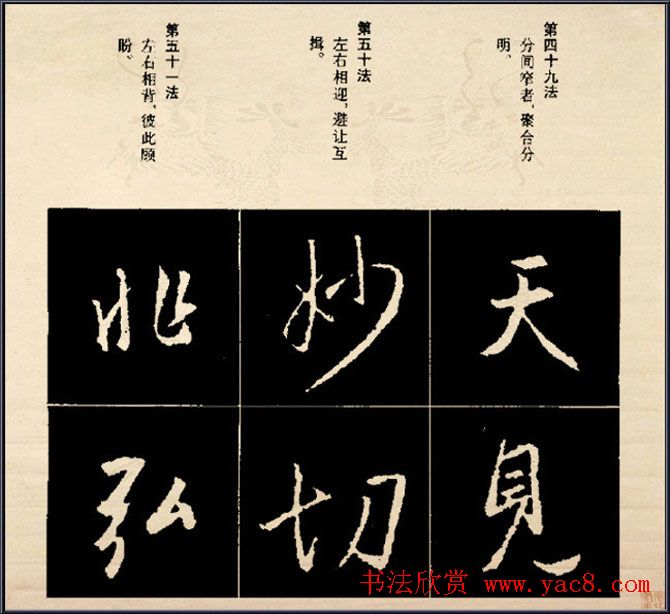 第四十九法
分间窄者，聚合分
明。
第五十法
左右相迎，避让互
揖。
第五十一法
左右相背，彼此顾
盼。
天
見
妙
切
非
弘
书法欣赏 www.yac8.com